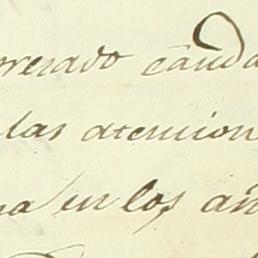 presado cauda
las atencion
na en los añ